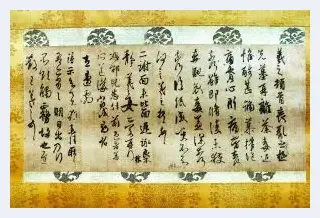 羲之頓首喪亂之極
先墓再離荼毒追
惟酷甚號慕摧絕
痛貫心肝痛當奈何
奈何雖即脩復未獲
奔馳哀毒益深奈何
奈何臨紙感哽不知
何言羲之頓首頓首
二謝面未比面遲詠良
不靜羲之女愛再拜
想邵兒悉佳前患者善
所送議當試尋省
左邊劇
得示知足下猶未佳耿耿
吾亦劣劣明日出乃行
不欲觸霧故也遲散